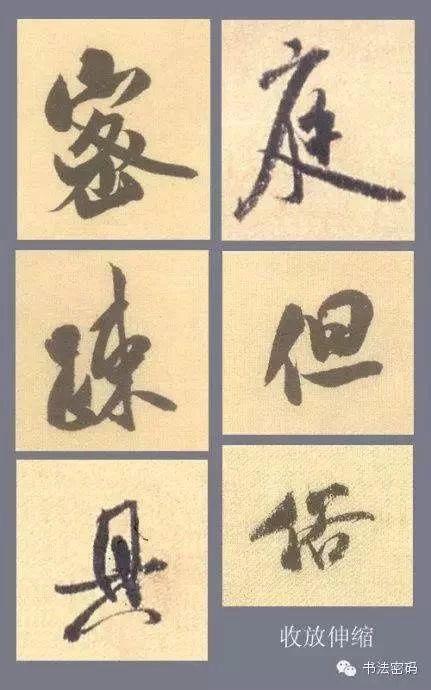 密
庭
疎
但
具
俗
收放伸缩
书法密码